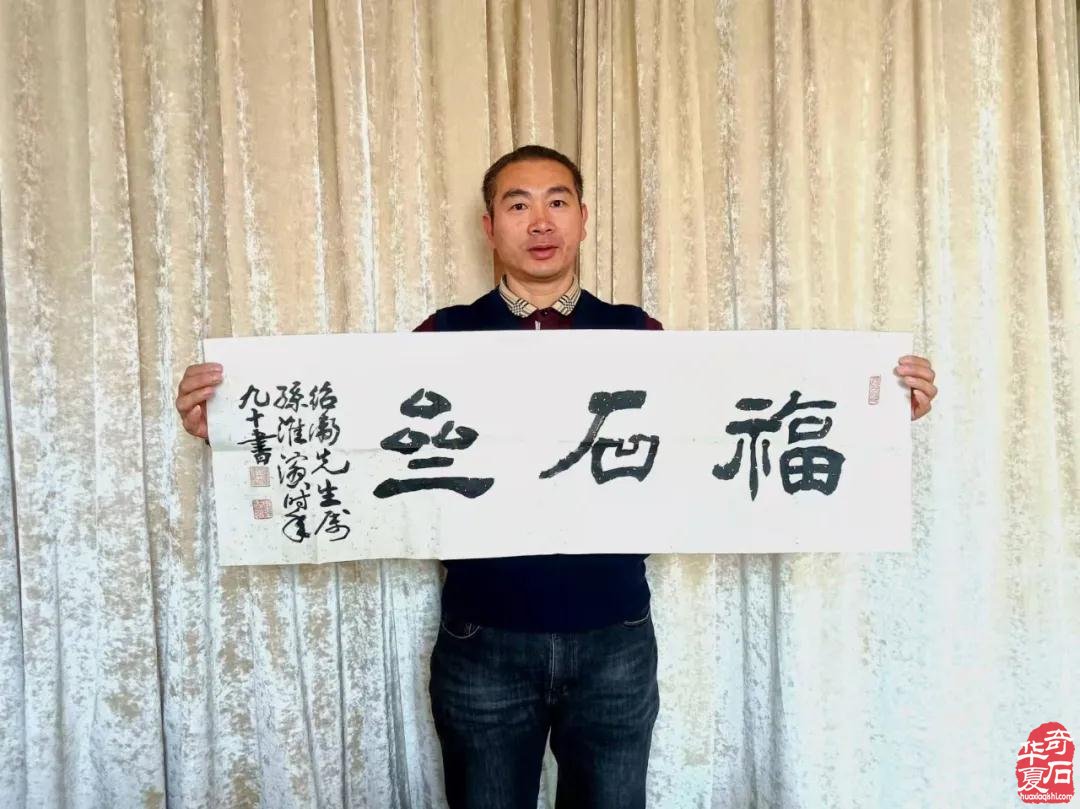 福石亝
紹衛先生属
孫淮濱时年
九十書
华夏
奇石
huaxiaqishi.com